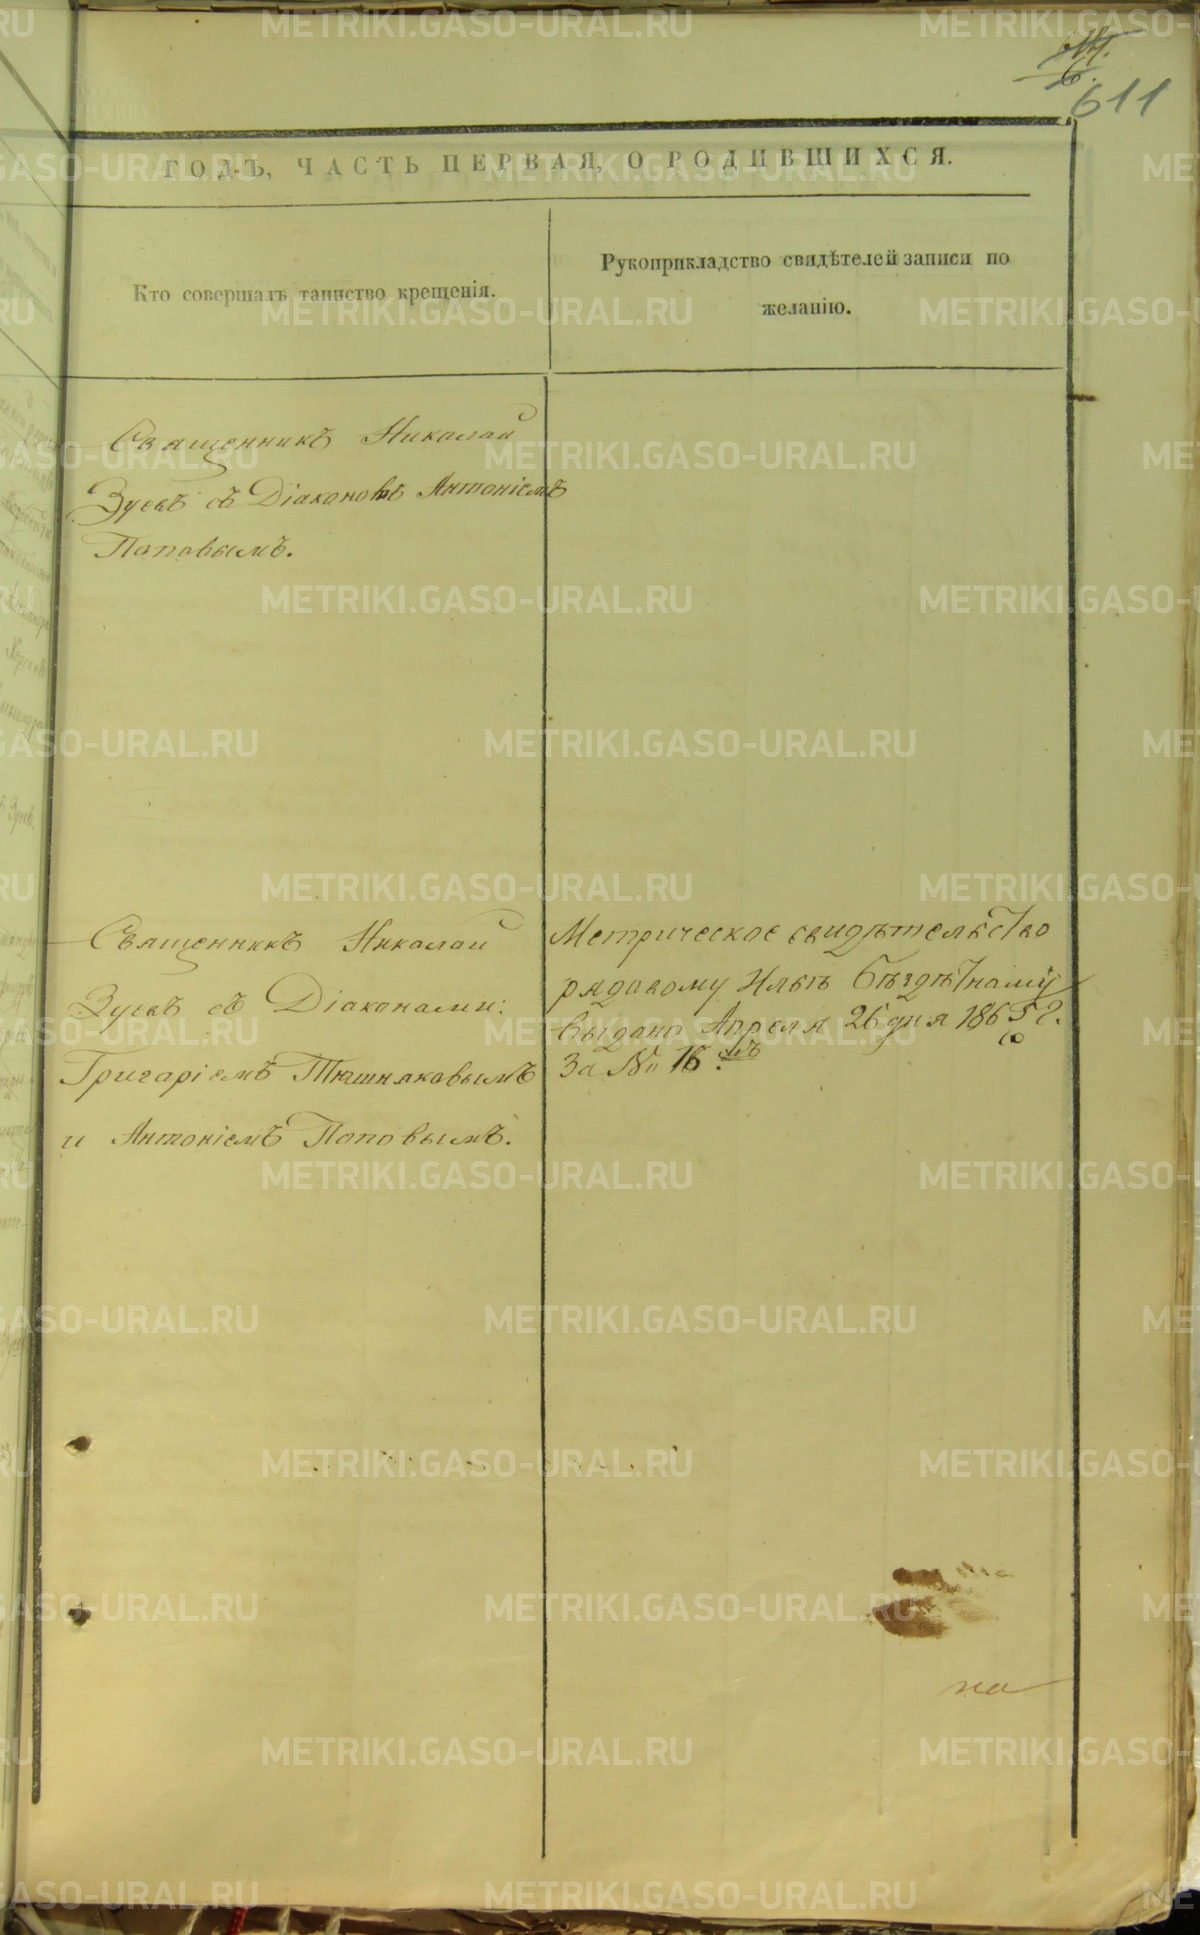 611
ГОДЪ, ЧАСТЬ ПЕРВАЯ, О РОДИВШИХСЯ.
Кто совершалъ таинство крещенія.
Рукоприкладство свидѣтелей записи по
желанію.
Священникъ Николай
Зуевъ съ Діакономъ Антоніемъ
Поповымъ.
Священникъ Николай
Зуевъ съ Діаконами:
Григоріемъ Тюшняковымъ
и Антоніемъ Поповымъ.
Метрическое свидѣтельство
рядовому Ильѣ
выдано Апреля 26 дня 1865 г.
За № 16.
на
METRIKI.GASO-URAL.RU